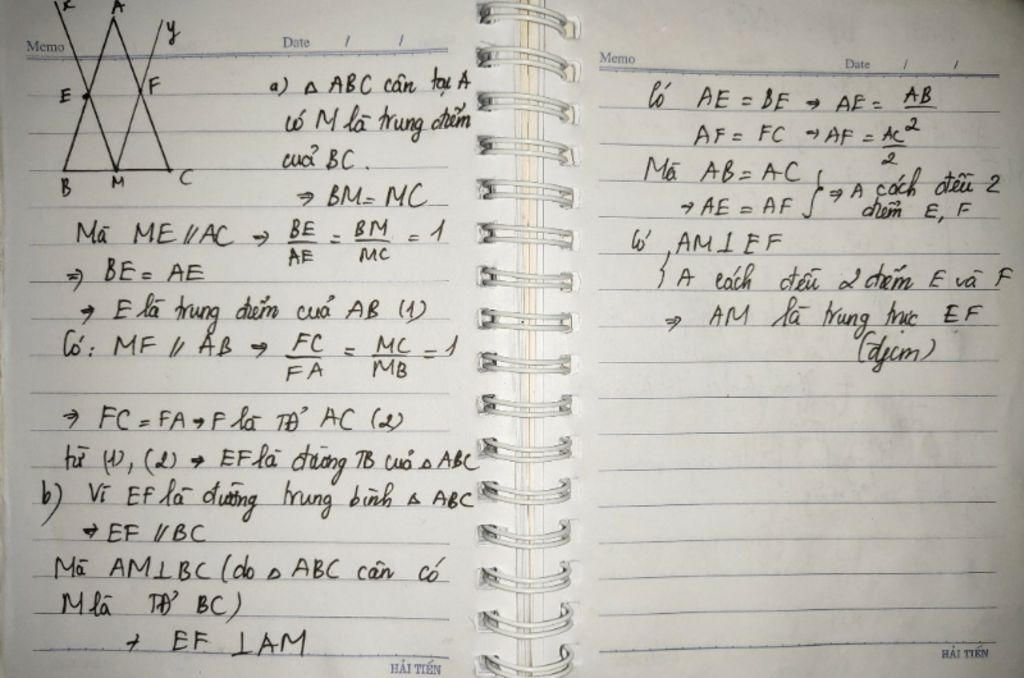 x A y
Memo Date / /
E F
B M C
a) △ ABC cân tại A
có M là trung điểm
cuả BC.
⇒ BM = MC
Mà ME // AC → BE/AE = BM/MC = 1
⇒ BE = AE
→ E là trung điểm cuả AB (1)
Có: MF // AB → FC/FA = MC/MB = 1
→ FC = FA → F là TĐ' AC (2)
từ (1), (2) → EF là đường TB cuả △ ABC
b) Vì EF là đường trung bình △ ABC
→ EF // BC
Mà AM ⊥ BC (do △ ABC cân có
M là TĐ' BC)
→ EF ⊥ AM
HẢI TIẾN
Memo Date / /
Có AE = BE → AE = AB/2
AF = FC → AF = AC/2
Mà AB = AC
→ AE = AF } ⇒ A cách đều 2 điểm E, F
Có { AM ⊥ EF
A cách đều 2 điểm E và F
⇒ AM là trung trực EF
(đpcm)
HẢI TIẾN